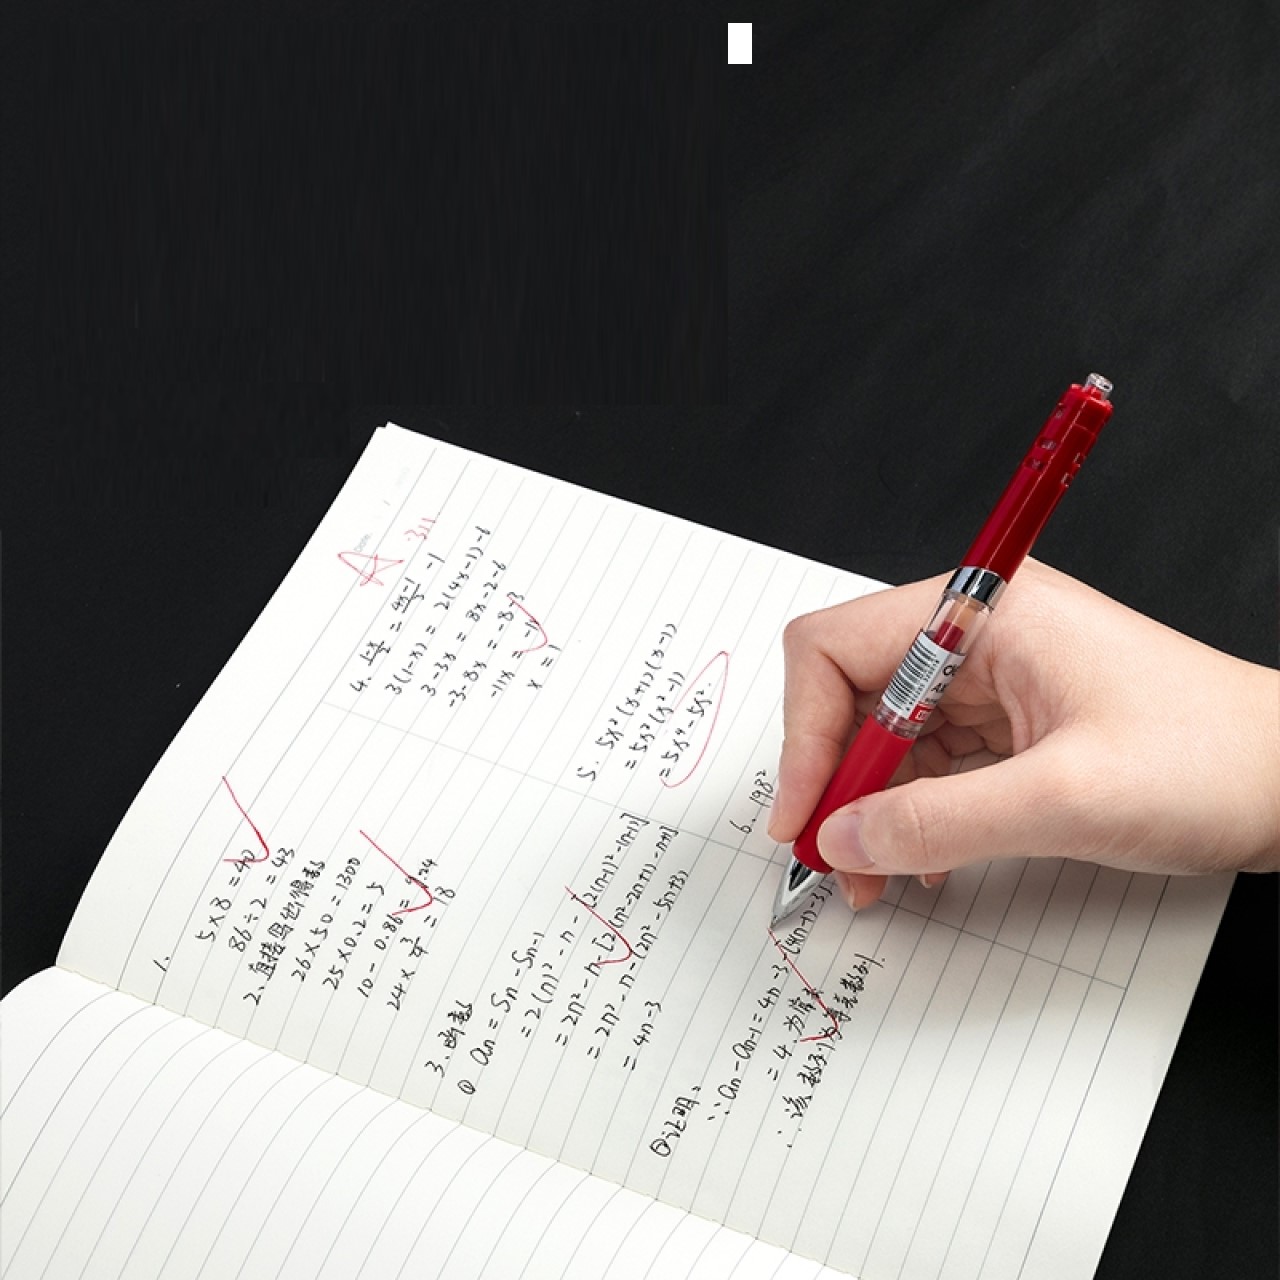 Date:
A
1.
5×8=40
86÷2=43
2、直接写出得数
26×50=1300
25×0.2=5
10-0.86=9.24
24×3/4=18
3、函数
① an=Sn-Sn-1
=2(n)²-n-[2(n-1)²-(n-1)]
=2n²-n-[2(n²-2n+1)-n+1]
=2n²-n-(2n²-5n+3)
=4n-3
②证明:
∵an-an-1=4n-3-[4(n-1)-3]
=4.为常数
∴该数列为等差数列.
4. 1-x/2=4x-1/3-1
3(1-x)=2(4x-1)-6
3-3x=8x-2-6
-3-8x=-8-3
-11x=-11
x=1
5、5x²(x+1)(x-1)
=5x²(x²-1)
=5x⁴-5x².
6、198²